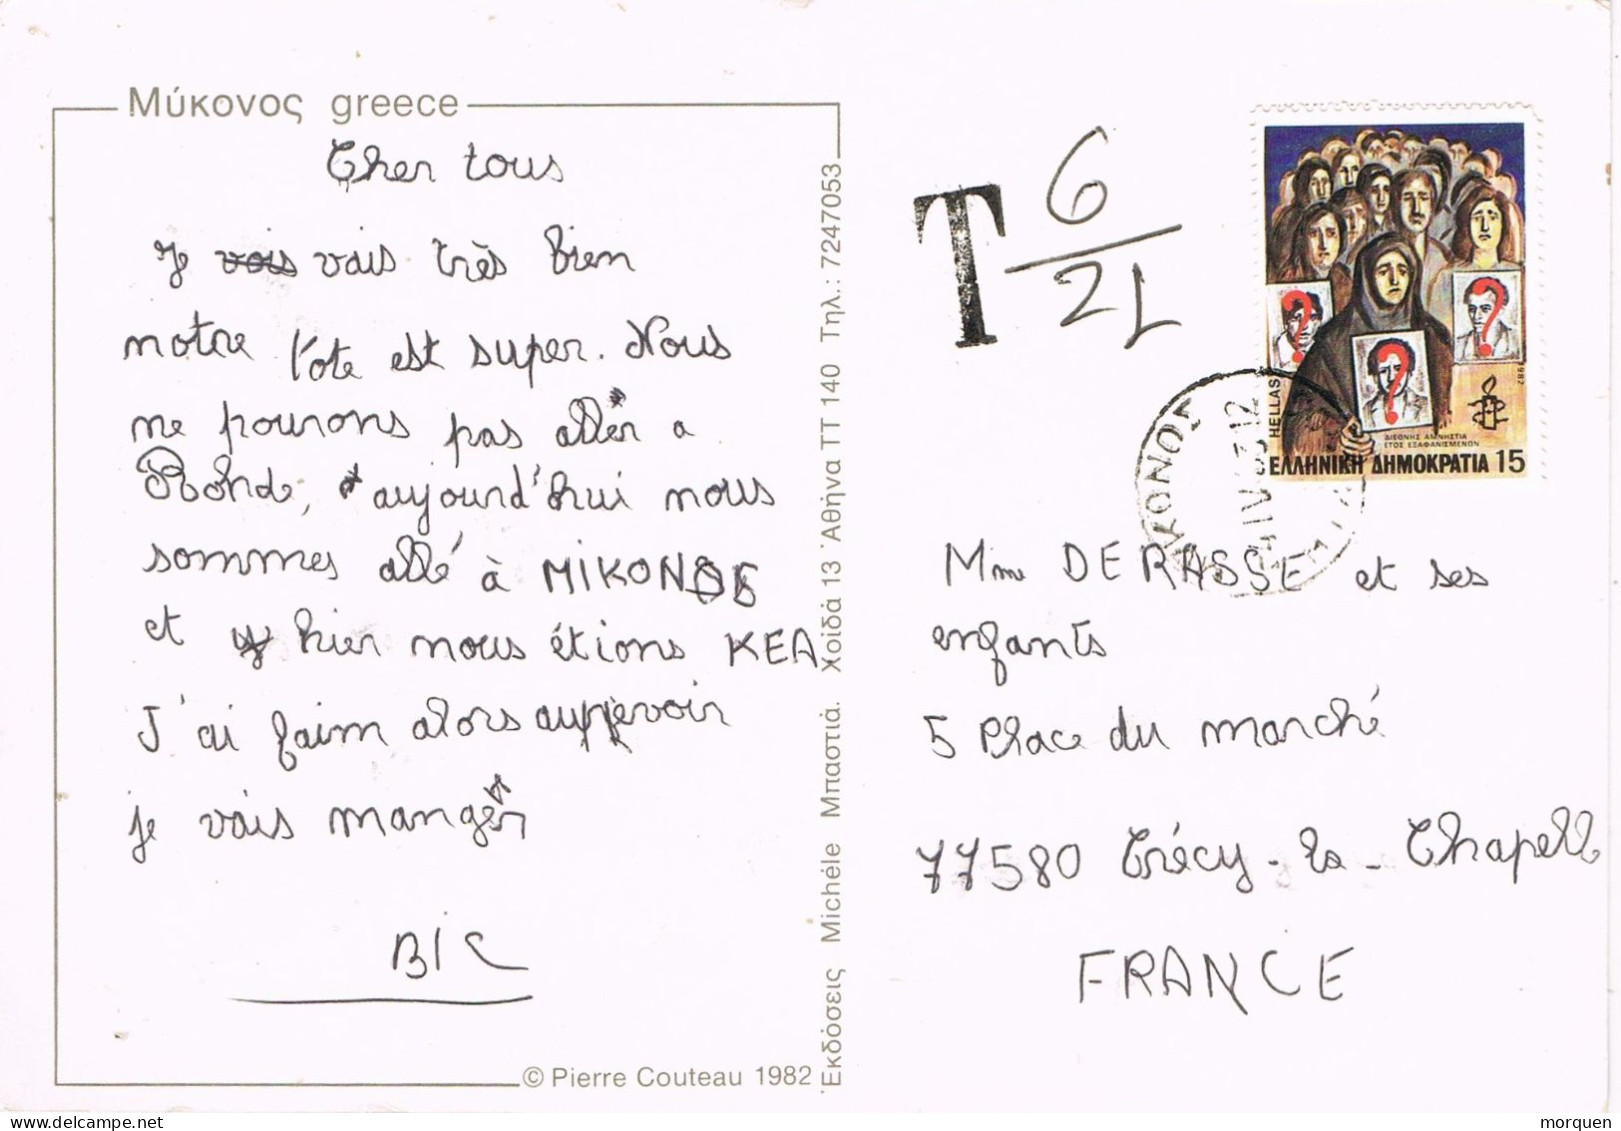 Μύκονος greece
Cher tous
Je vois vais très bien
notre l'ote est super. Nous
ne pourons pas aller a
Rohde, aujourd'hui nous
sommes allé à MIKONOS
et hier nous étions KEA
J'ai faim alors aurrevoir
je vais manger
BIC
© Pierre Couteau 1982
Ἐκδόσεις Michéle Μπαστιά. Χοϊδά 13 Ἀθήνα ΤΤ 140 Τηλ.: 7247053
T 6/21
HELLAS
1982
ΔΙΕΘΝΗΣ ΑΜΝΗΣΤΙΑ
ΕΤΟΣ ΕΞΑΦΑΝΙΣΜΕΝΩΝ
ΕΛΛΗΝΙΚΗ ΔΗΜΟΚΡΑΤΙΑ 15
ΜΥΚΟΝΟΣ
Mme DERASSE et ses
enfants
5 Place du marché
77580 Crécy-la-Chapell
FRANCE
morquen